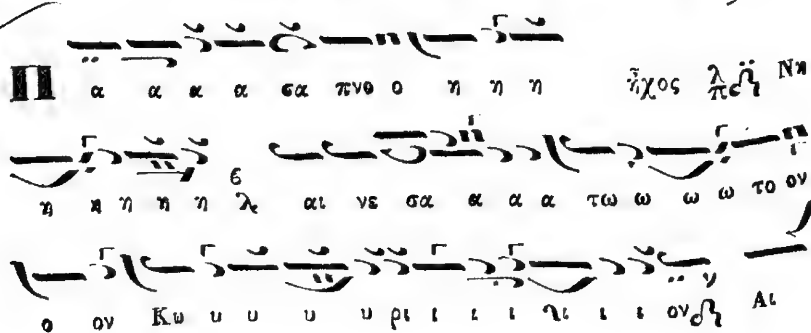 Π α α α α σα πνο ο η η η ἦχος λ π Νη
η η η η η λ 6 αι νε σα α α α τω ω ω ω το ον
ο ον Κω υ υ υ υ ρι ι ι ι ι ι ι ον Αι